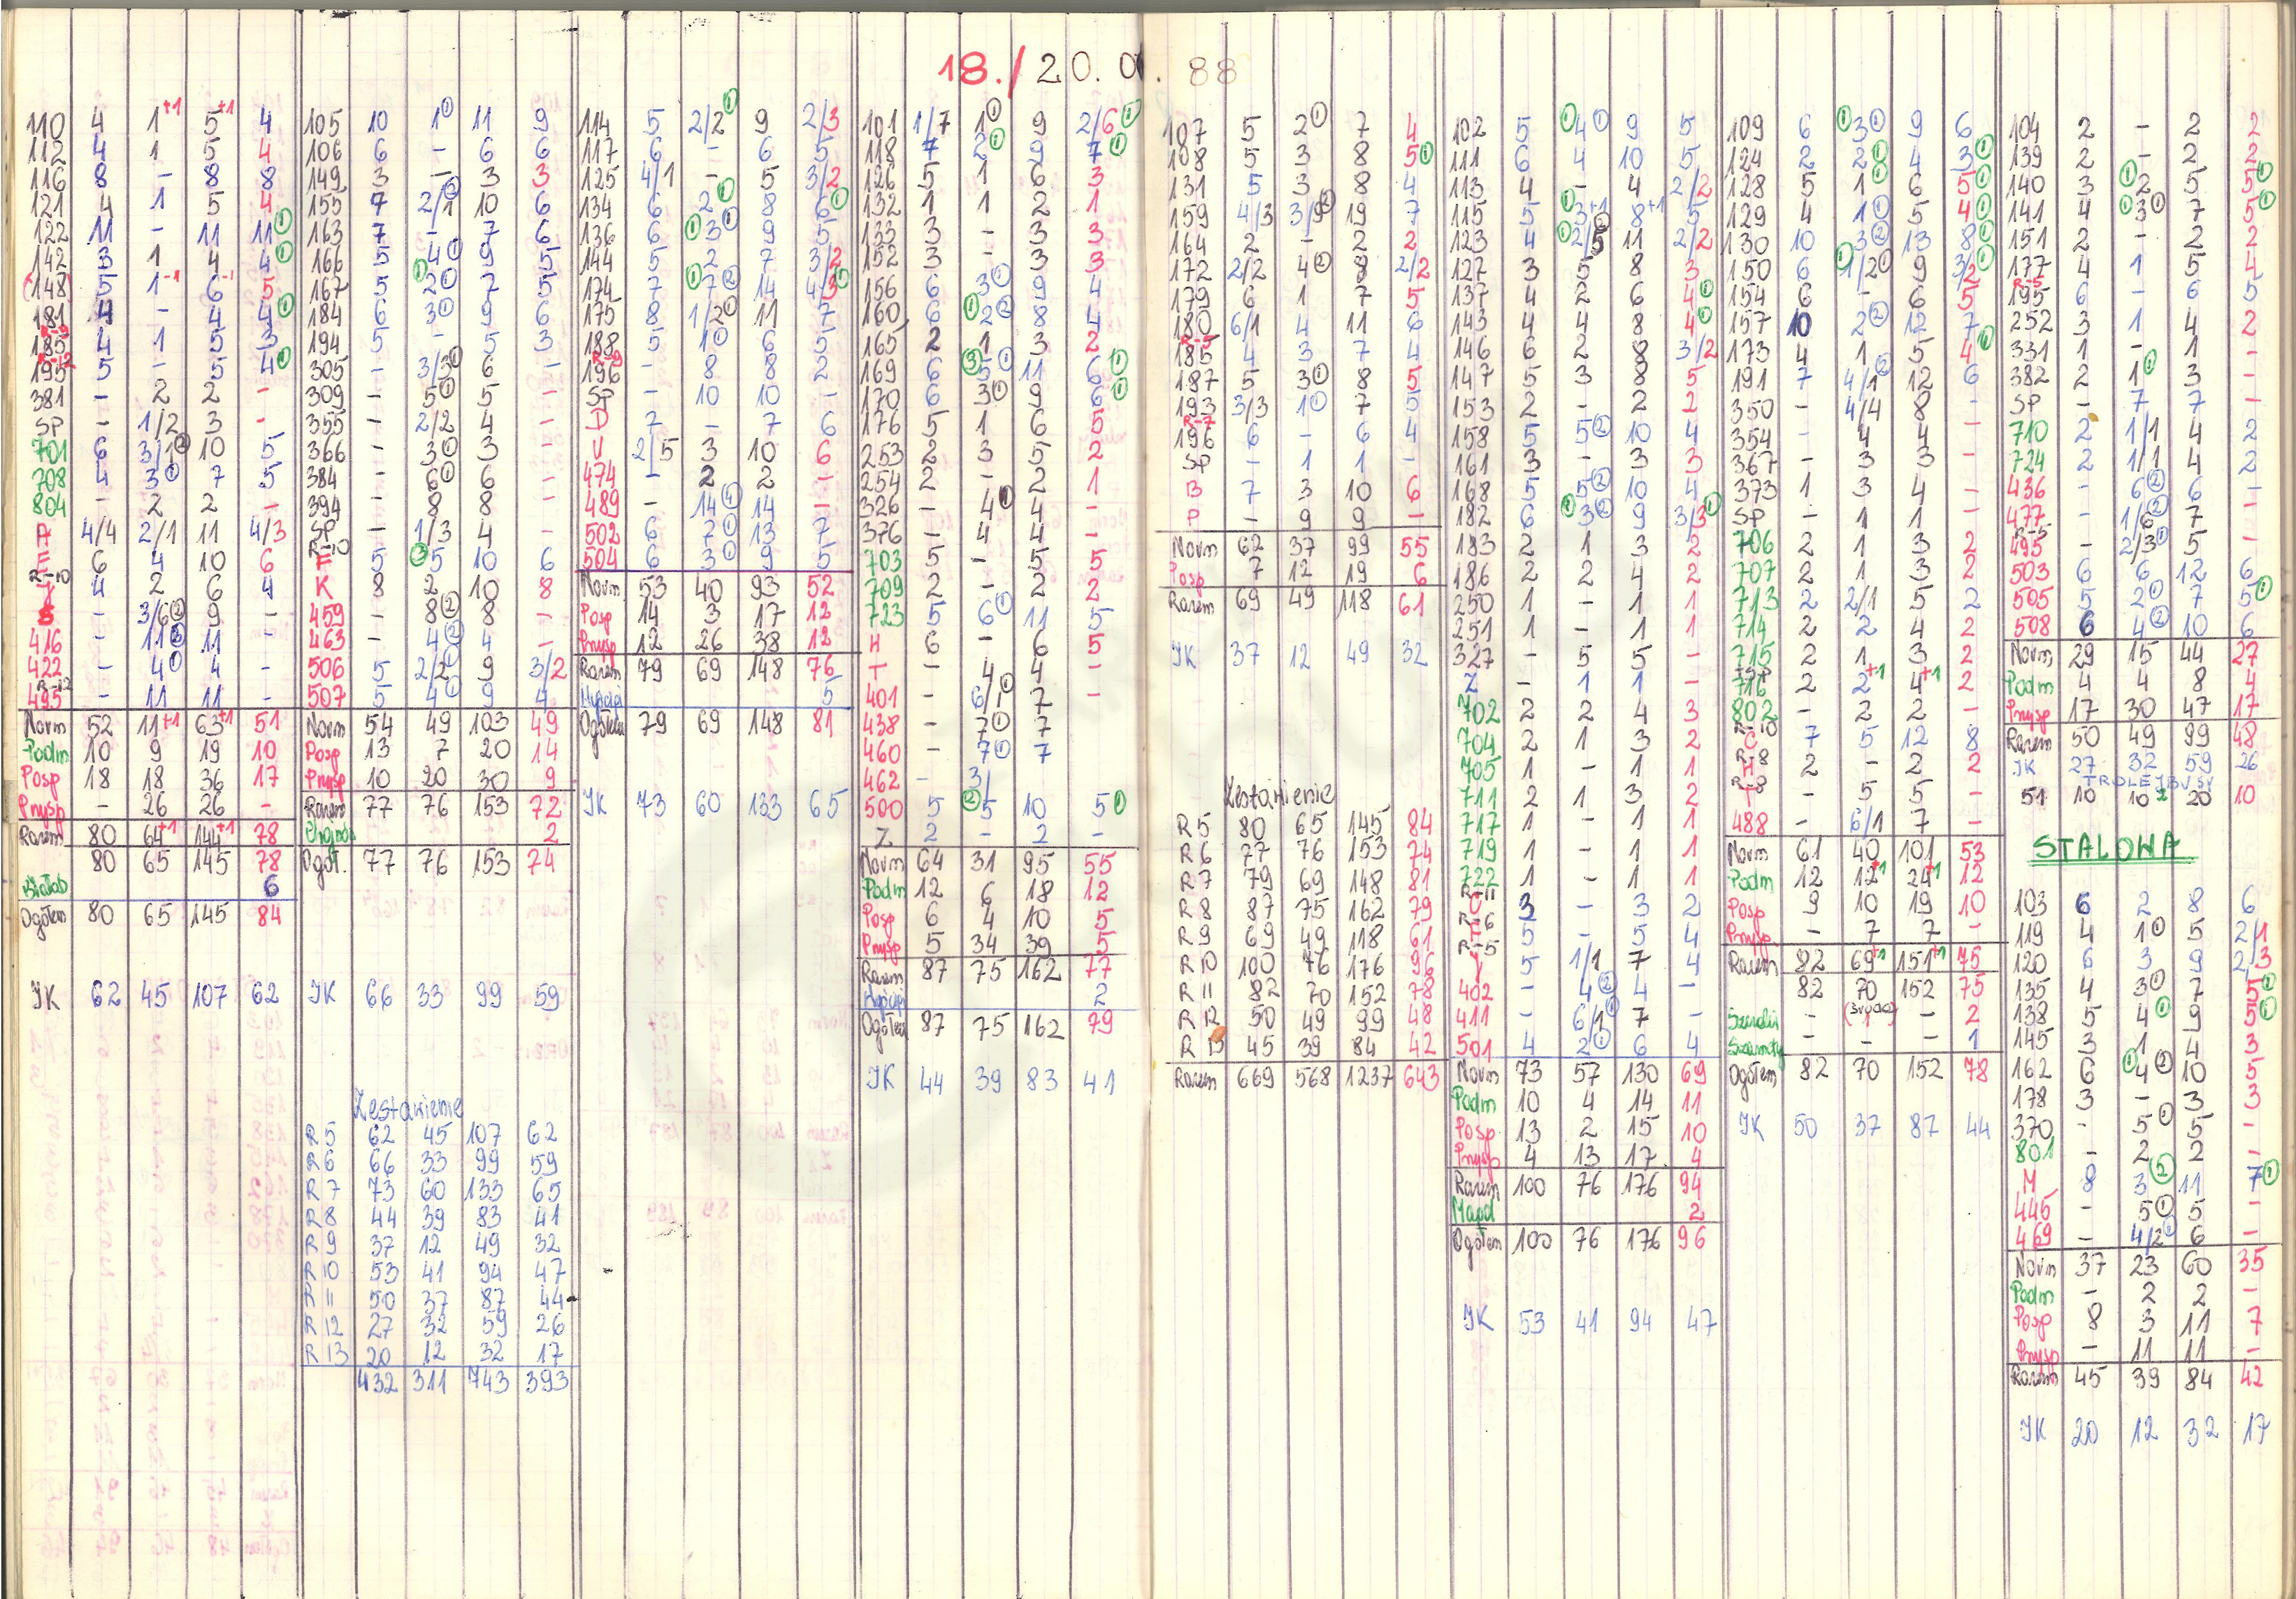 18./20.0 . 88
110 4 1+1 5+1 4
112 4 1 5 4
116 8 - 8 8
121 4 1 5 4
122 11 - 11 11①
142 3 1 4 4①
(148) 5 1-1 6-1 5
181 4 - 4 4①
R-9
185 4 1 5 3
R-12
195 5 - 5 4①
381 - 2 2 -
SP - 1/2 3 -
701 6 3/1② 10 5
708 4 3① 7 5
804 - 2 2 -
A 4/4 2/1 11 4/3
E 6 4 10 6
R-10
Y 4 2 6 4
S - 3/6② 9 -
416 - 11③ 11 -
422 - 4① 4 -
R-12
495 - 11 11 -
Norm 52 11+1 63+1 51
Podm 10 9 19 10
Posp 18 18 36 17
Pnysp - 26 26 -
Razem 80 64+1 144+1 78
80 65 145 78
Białob 6
Ogółem 80 65 145 84
JK 62 45 107 62
105 10 1① 11 9
106 6 - 6 6
149 3 - 3 3
155 7 2/1② 10 6
163 7 - 7 6
166 5 4① 9 5
167 5 ①2① 7 5
184 6 3① 9 6
194 5 - 5 3
305 - 3/3① 6 -
309 - 5① 5 -
355 - 2/2 4 -
366 - 3① 3 -
384 - 6① 6 -
394 - 8 8 -
SP - 1/3 4 -
R-10
F 5 ③5 10 6
K 8 2 10 8
459 - 8② 8 -
463 - 4② 4 -
506 5 2/2① 9 3/2
507 5 4① 9 4
Norm 54 49 103 49
Posp 13 7 20 14
Pnysp 10 20 30 9
Razem 77 76 153 72
2
Ogół. 77 76 153 74
JK 66 33 99 59
Zestawienie
R 5 62 45 107 62
R 6 66 33 99 59
R 7 73 60 133 65
R 8 44 39 83 41
R 9 37 12 49 32
R 10 53 41 94 47
R 11 50 37 87 44
R 12 27 32 59 26
R 13 20 12 32 17
432 311 743 393
114 5 2/2① 9 2/3
117 6 - 6 5
125 4/1 - 5 3/2
134 6 2① 8 6①
136 6 ①3① 9 5
144 5 2 7 3/2
174 7 ①7② 14 4/3①
175 8 1/2① 11 7
188 5 1① 6 5
R-9
196 - 8 8 2
SP - 10 10 -
D 7 - 7 6
U 2/5 3 10 6
474 - 2 2 -
489 - 14④ 14 -
502 6 7① 13 7
504 6 3① 9 5
Norm 53 40 93 52
Posp 14 3 17 12
Pnysp 12 26 38 12
Razem 79 69 148 76
5
Ogółem 79 69 148 81
JK 73 60 133 65
101 1/7 1① 9 2/6①
118 7 2① 9 7①
126 5 1 6 3
132 1 1 2 1
133 3 - 3 3
152 3 - 3 3
156 6 3① 9 4
160 6 ①2② 8 4
165 2 1 3 2
169 6 ③5① 11 6①
170 6 3① 9 6①
176 5 1 6 5
253 2 3 5 2
254 2 - 2 1
326 - 4① 4 -
376 - 4 4 -
703 5 - 5 5
709 2 - 2 2
723 5 6① 11 5
H 6 - 6 5
T - 4 4 -
401 - 6/1① 7 -
438 - 7① 7
460 - 7① 7
462 - 3/
500 5 ②5 10 5①
Z 2 - 2 -
Norm 64 31 95 55
Podm 12 6 18 12
Posp 6 4 10 5
Pnysp 5 34 39 5
Razem 87 75 162 77
2
Ogółem 87 75 162 79
JK 44 39 83 41
107 5 2① 7 4
108 5 3 8 5①
131 5 3 8 4
159 4/3 3/9② 19 7
164 2 - 2 2
172 2/2 4② 8 2/2
179 6 1 7 5
180 6/1 4 11 6
R-5
185 4 3 7 4
187 5 3① 8 5
193 3/3 1① 7 5
R-7
196 6 - 6 4
SP - 1 1 -
B 7 3 10 6
P - 9 9 -
Norm 62 37 99 55
Posp 7 12 19 6
Razem 69 49 118 61
JK 37 12 49 32
Zestawienie
R 5 80 65 145 84
R 6 77 76 153 74
R 7 79 69 148 81
R 8 87 75 162 79
R 9 69 49 118 61
R 10 100 76 176 96
R 11 82 70 152 78
R 12 50 49 99 48
R 13 45 39 84 42
Razem 669 568 1237 643
102 5 ①4① 9 5
111 6 4 10 5
113 4 - 4 2/2
115 5 ①3+1 8+1 5
123 4 ①2/5① 11 2/2
127 3 5 8 3
137 4 2 6 4①
143 4 4 8 4①
146 6 2 8 3/2
147 5 3 8 5
153 2 - 2 2
158 5 5② 10 4
161 3 - 3 3
168 5 5② 10 4
182 6 ①3② 9 3/3①
183 2 1 3 2
186 2 2 4 2
250 1 - 1 1
251 1 - 1 1
327 - 5 5 -
Z - 1 1 -
702 2 2 4 3
704 2 1 3 2
705 1 - 1 1
711 2 1 3 2
717 1 - 1 1
719 1 - 1 1
722 1 - 1 1
R-11
C 3 - 3 2
R-6
F 5 - 5 4
R-5
Y 5 1/1 7 4
402 - 4② 4 -
411 - 6/1① 7 -
501 4 2① 6 4
Norm 73 57 130 69
Podm 10 4 14 11
Posp 13 2 15 10
Pnysp 4 13 17 4
Razem 100 76 176 94
Mapd 2
Ogółem 100 76 176 96
JK 53 41 94 47
109 6 ①3① 9 6
124 2 2① 4 3①
128 5 1① 6 5①
129 4 1① 5 4①
130 10 3② 13 8①
150 6 ①1/2① 9 3/2①
154 6 - 6 5
157 10 2② 12 7
173 4 1 5 4①
191 7 4/1② 12 6
350 - 4/4 8 -
354 - 4 4 -
367 - 3 3 -
373 1 3 4 -
SP - 1 1 -
706 2 1 3 2
707 2 1 3 2
713 2 2/1 5 2
714 2 2 4 2
715 2 1 3 2
716 2 2+1 4+1 2
802 - 2 2 -
R-10
C 7 5 12 8
R-8
H 2 - 2 2
R-8
T - 5 5 -
488 - 6/1 7 -
Norm 61 40 101 53
Podm 12 12+1 24+1 12
Posp 9 10 19 10
Pnysp - 7 7 -
Razem 82 69+1 151+1 75
82 70 152 75
- 1 - 2
- - - 1
Ogółem 82 70 152 78
JK 50 37 87 44
104 2 - 2 2
139 2 - 2 2
140 3 ①2 5 5①
141 4 ①3① 7 5①
151 2 - 2 2
177 4 1 5 4
R-5
195 6 - 6 5
252 3 1 4 2
331 1 - 1 -
382 2 1① 3 -
SP - 7 7 -
710 2 1/1 4 2
724 2 1/1 4 2
436 - 6② 6 -
477 - 1/6② 7 -
R-5
495 - 2/3① 5 -
503 6 6 12 6
505 5 2① 7 5①
508 6 4② 10 6
Norm 29 15 44 27
Podm 4 4 8 4
Pnysp 17 30 47 17
Razem 50 49 99 48
JK 27 32 59 26
TROLEJBUSY
51 10 10 20 10
STALOWA
103 6 2 8 6
119 4 1① 5 2/1
120 6 3 9 2/3
135 4 3① 7 5①
138 5 4① 9 5①
145 3 1 4 3
162 6 ①4② 10 5
178 3 - 3 3
370 - 5① 5 -
801 - 2 2 -
M 8 3② 11 7①
446 - 5① 5 -
469 - 4/2① 6 -
Norm 37 23 60 35
Podm - 2 2 -
Posp 8 3 11 7
Pnysp - 11 11 -
Razem 45 39 84 42
JK 20 12 32 17